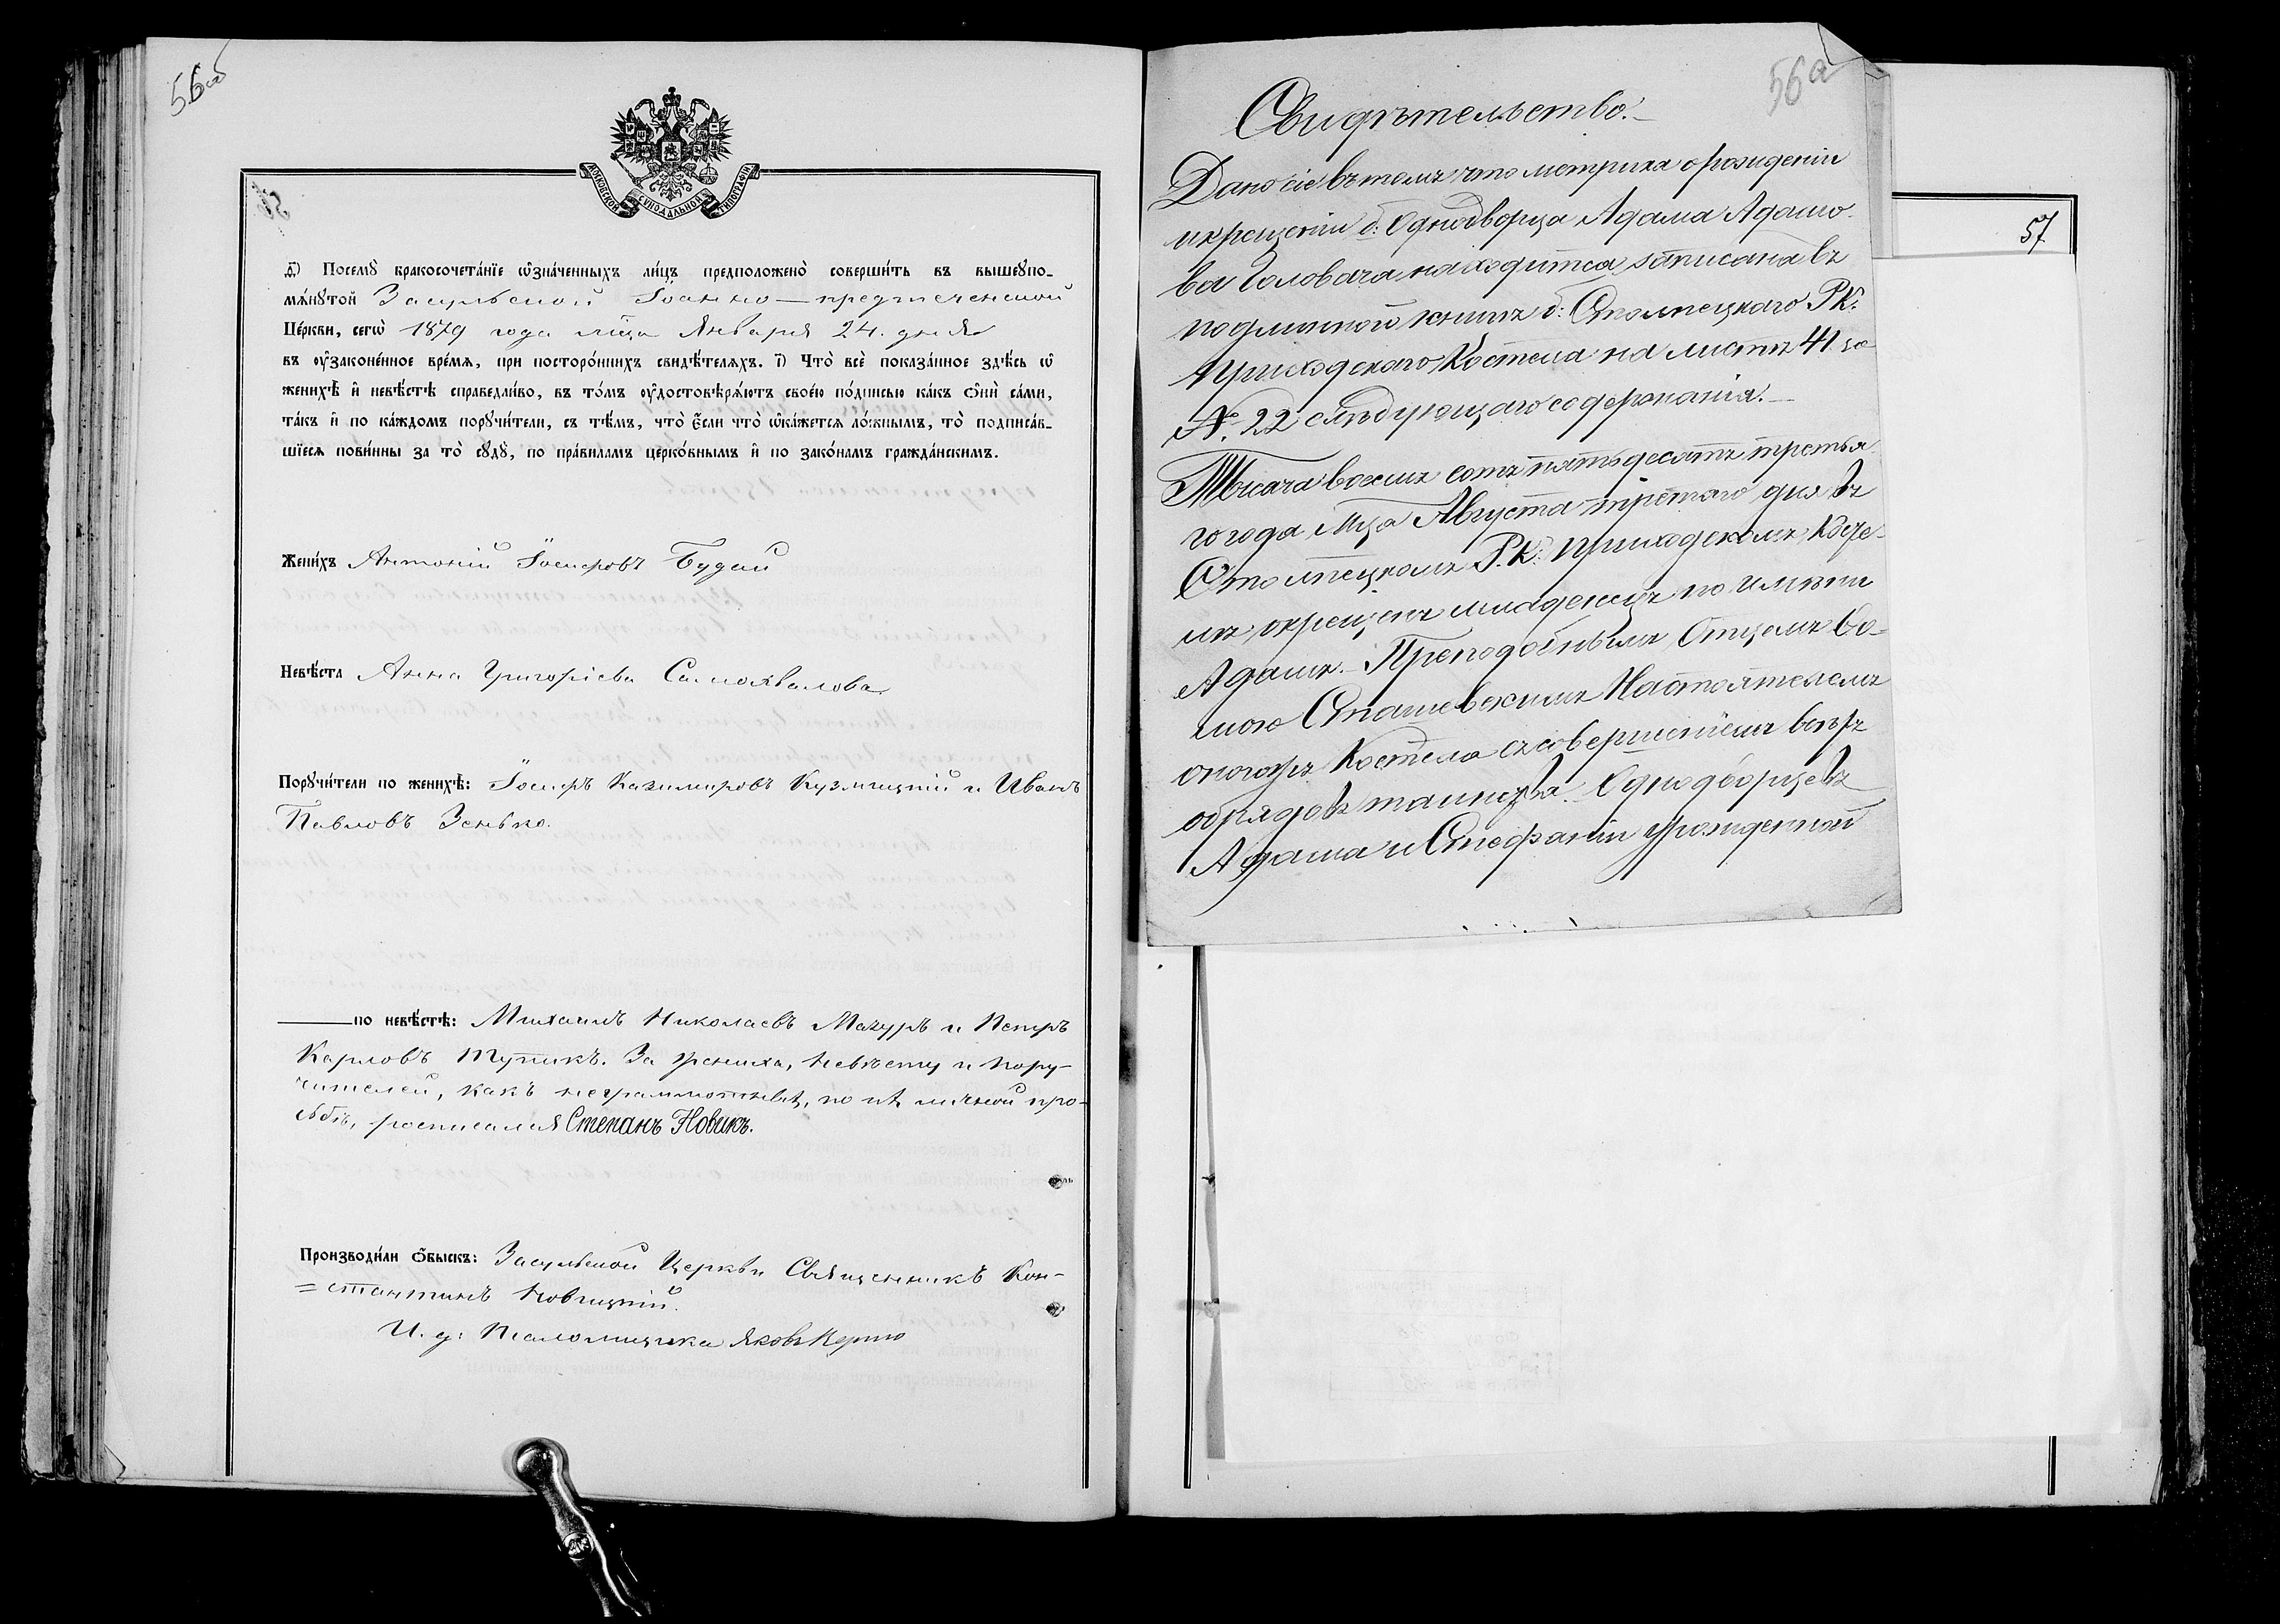 56а
МОСКОВСКОЙ СѴНОДАЛЬНОЙ ТИПОГРАФІИ
д҃) Посемꙋ̀ бракосочета́нїе ѡ҆зна́ченныхъ ли́цъ предположено̀ соверши́ть въ вышеꙋпо-
мѧ́нꙋтой Засульской Іоанно-предтеченской
Це́ркви, сегѡ̀ 1879 года мѣца Января 24. дня
въ ᲂу҆законе́нное вре́мѧ, при посторо́ннихъ свидѣ́телѧхъ. і҃) Что̀ всѐ показа́нное здѣ́сь ѡ҆
женихѣ̀ и҆ невѣ́стѣ справедли́во, въ то́мъ ᲂу҆достовѣрѧ́ютъ свое́ю по́дписью ка́къ ѻ҆нѝ са́ми,
та́къ и҆ по ка́ждомъ порꙋчи́тели, съ тѣ́мъ, что̀ є҆́сли что̀ ѡ҆ка́жетсѧ ло́жнымъ, то̀ подписа́в-
шїесѧ пови́нны за то̀ сꙋдꙋ̀, по пра́виламъ церко́внымъ и҆ по зако́намъ гражда́нскимъ.
Жени́хъ Антоній Іосифовъ Будай
Невѣ́ста Анна Григоріева Самохвалова
Порꙋчи́тели по женихѣ̀: Іосифъ Казимировъ Кузмицкій и Иванъ
Павловъ Зенько.
по невѣ́стѣ: Михаилъ Николаевъ Мазуръ и Петръ
Карловъ Тупикъ. За жениха, невѣсту и пору-
чителей, какъ неграммотныхъ, по ихъ личной про-
сьбѣ, росписался Степанъ Новикъ.
Производи́ли ѻ҆́быскъ: Засульской Церкви Священникъ Кон-
=стантинъ Новицкій.
И. д: Псаломщика Яковъ
56а
Свидѣтельство.
Дано сіе въ томъ что метрика о рождении
и крещеніи б: Однодворца Адама Адамо-
ва Головача находится записана въ
подлинной книгѣ б: Столпецкаго Р.К:
приходскаго Костела на листѣ 41 за
№ 22 слѣдующаго содержанія.
Тысяча восемь сотъ пятьдесятъ третья
го года Мца Августа третяго дня въ
Столпецкомъ Р.К: приходскомъ Косте-
лѣ окрещенъ младенецъ по имени
Адамъ. Преподобнымъ Отцемъ Ѳо-
мою Сташевскимъ Настоятелемъ
оногожъ Костела съ совершеніемъ всѣхъ
обрядовъ таинства. Однодворцевъ
Адама и Стефаніи урожденной
57